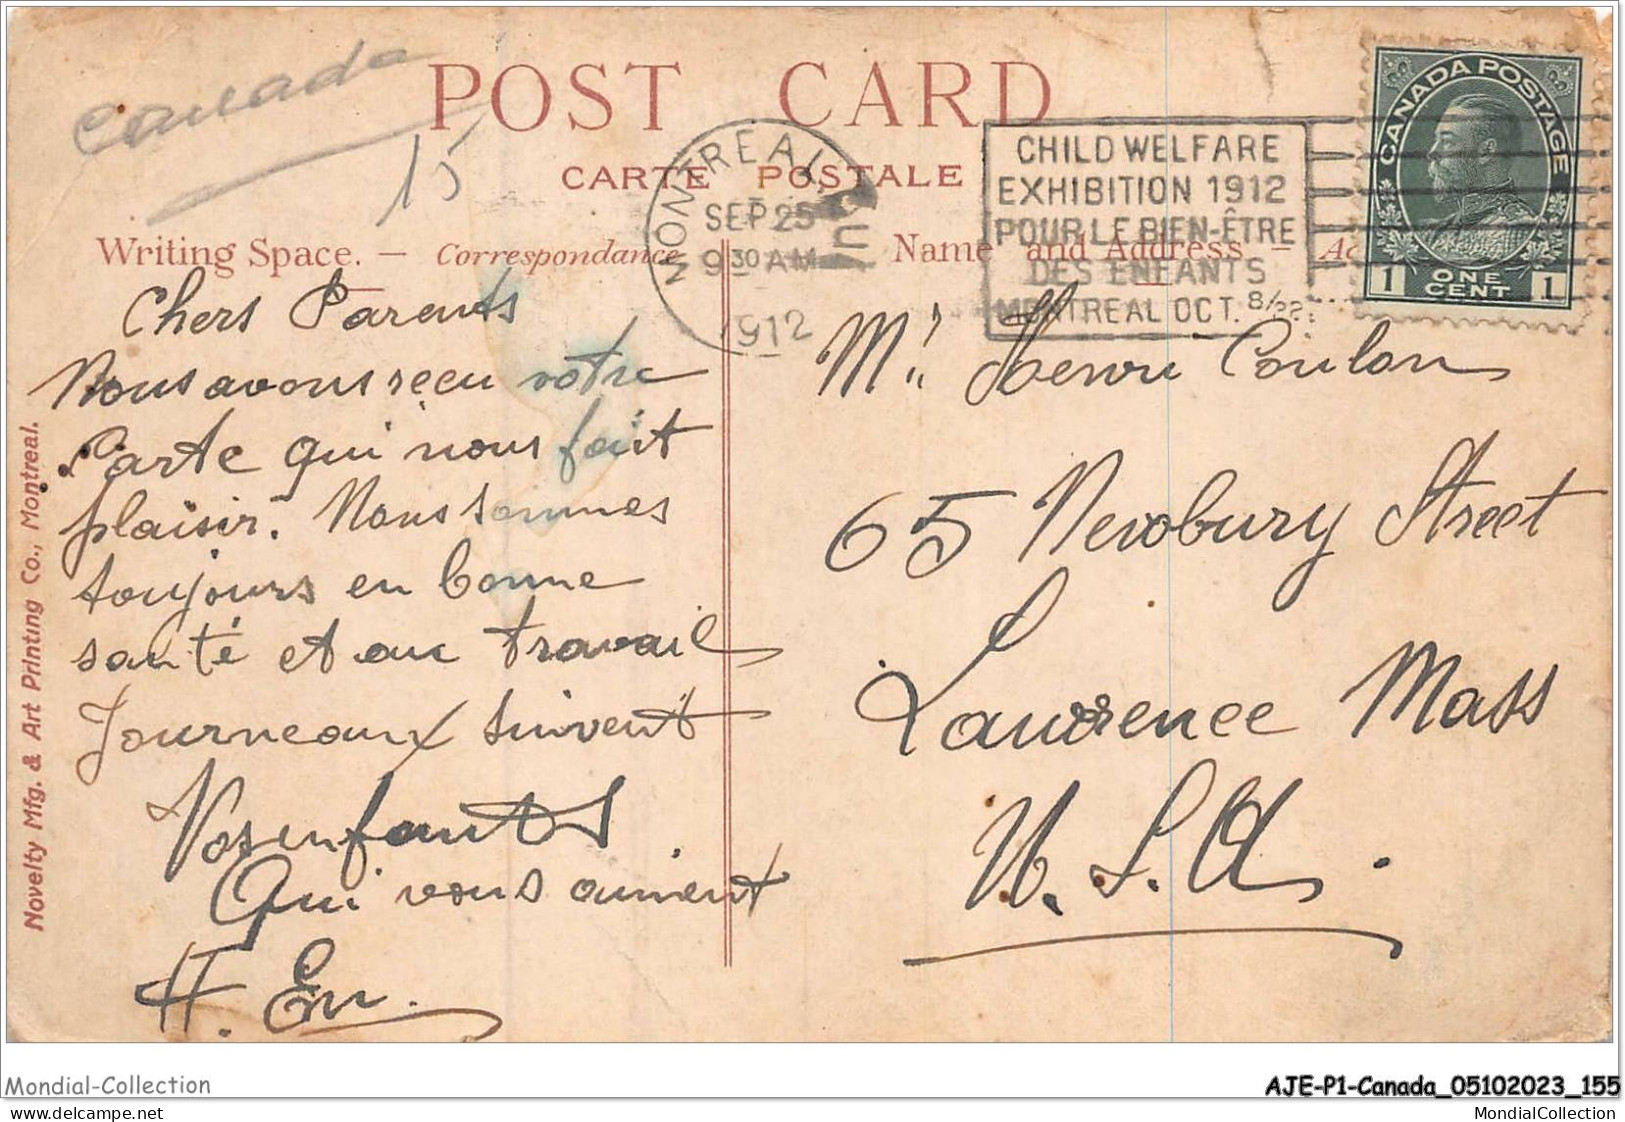 Canada
15
POST CARD
CARTE POSTALE
MONTREAL QUE
SEP 25
9 30 AM
1912
CHILD WELFARE
EXHIBITION 1912
POUR LE BIEN-ÊTRE
DES ENFANTS
MONTREAL OCT. 8/22
CANADA POSTAGE
1 ONE CENT 1
Writing Space. — Correspondance
Name and Address —
Chers Parents
Nous avons reçu votre
Carte qui nous fait
plaisir. Nous sommes
toujours en bonne
santé et au travail
Journeaux suivent
Vos enfants
Qui vous aiment
H. Em.
Mr. Henri Coulon
65 Newbury Street
Lawrence Mass
U.S.A.
Novelty Mfg. & Art Printing Co., Montreal.
Mondial-Collection
www.delcampe.net
AJE-P1-Canada_05102023_155
MondialCollection